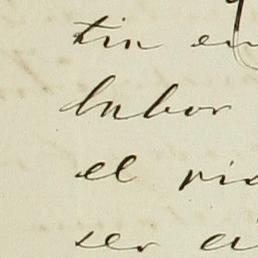 tin en
labor
el vis
ser a